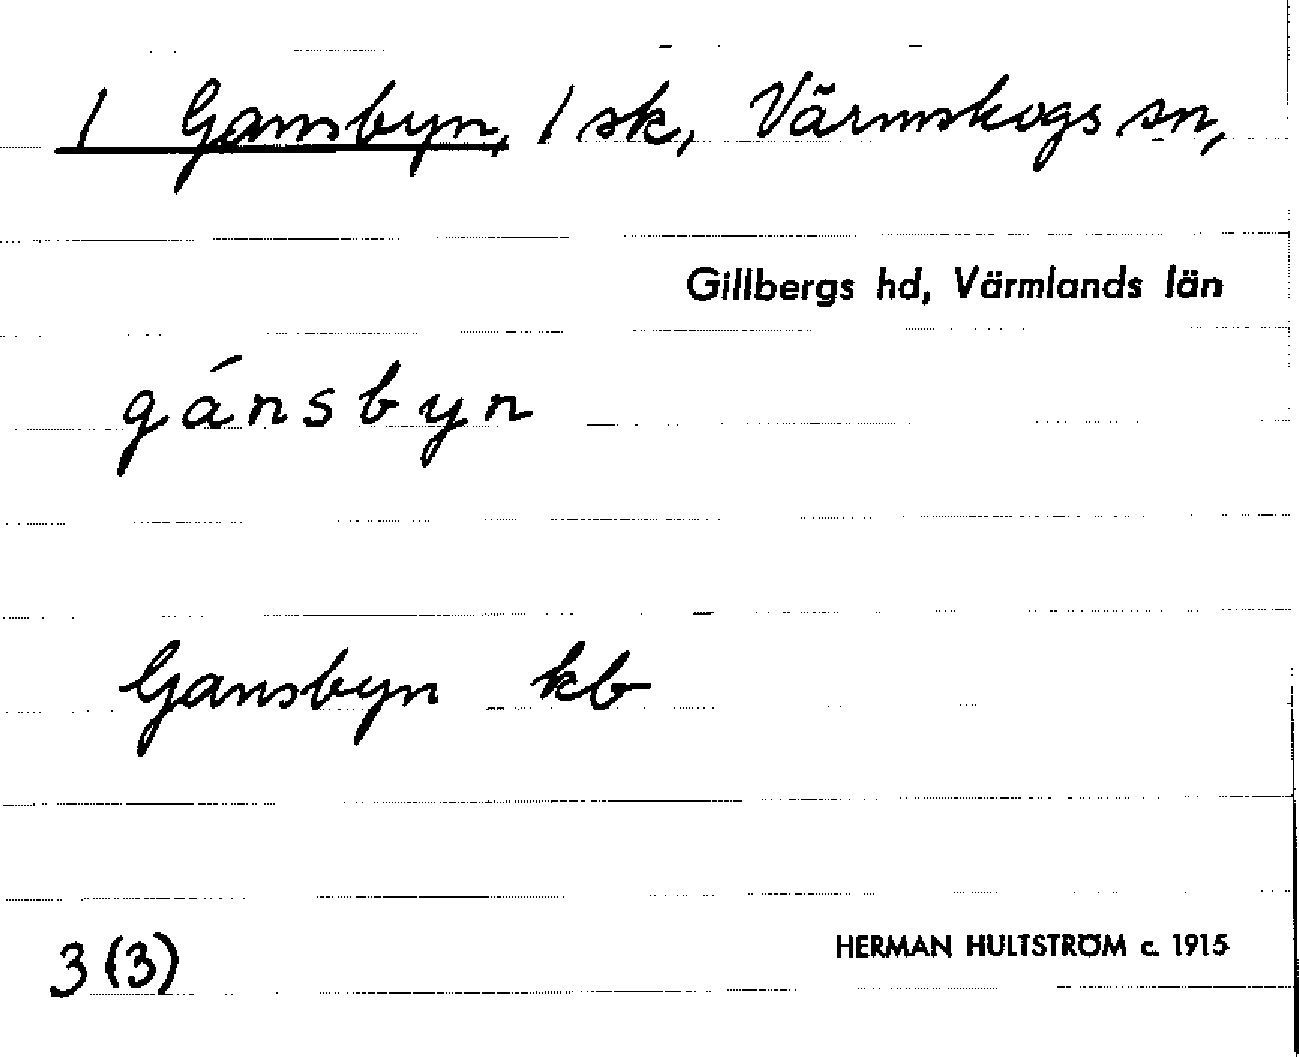 1 Gansbyn, 1 sk, Värmskogs sn,
Gillbergs hd, Värmlands län
gánsbyn
Gansbyn kb
3 (3)
HERMAN HULTSTRÖM c. 1915